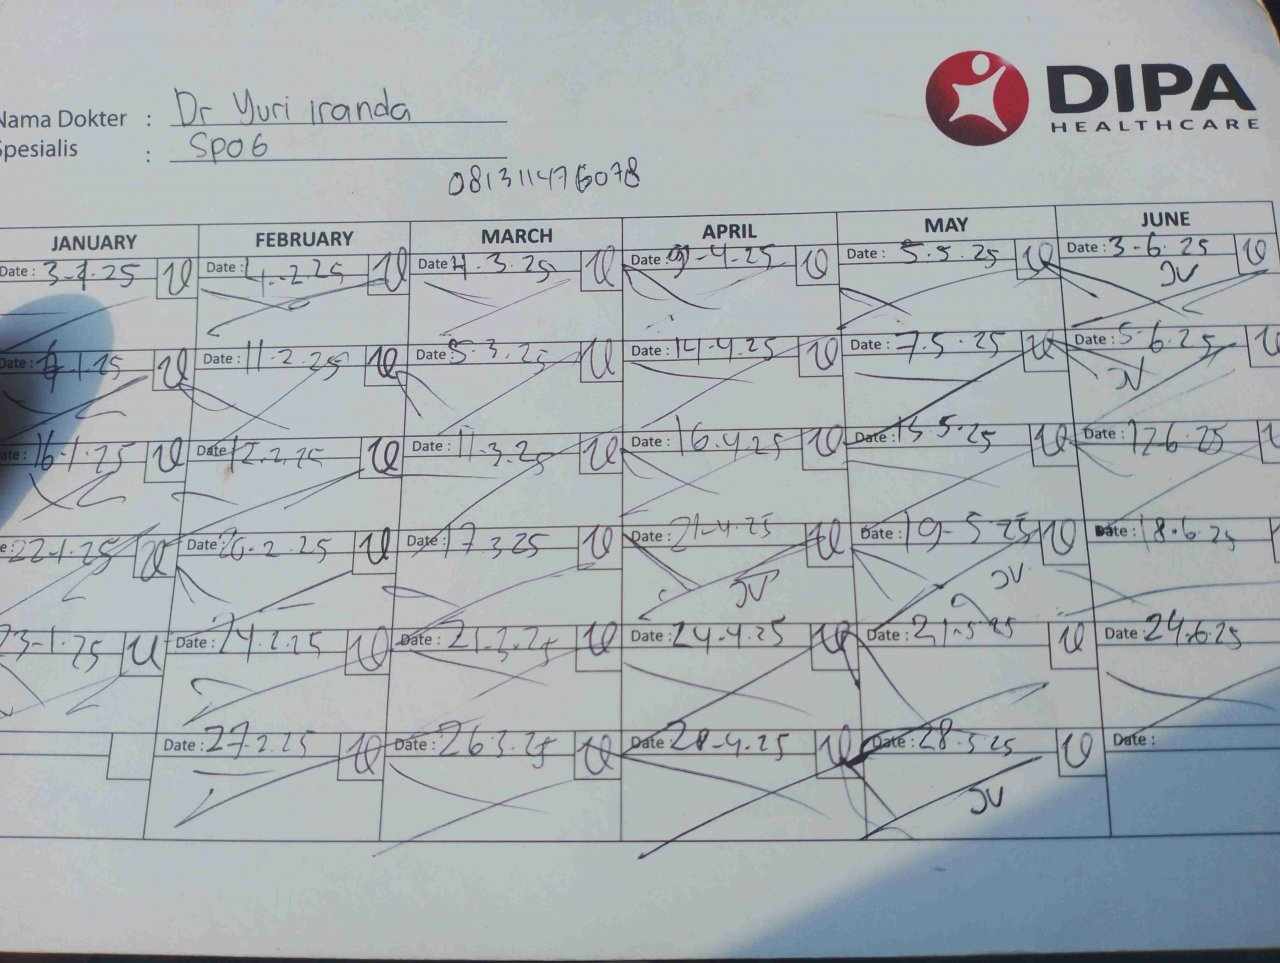 DIPA
HEALTHCARE
Nama Dokter : Dr Yuri iranda
Spesialis : SPOG
081311476078
JANUARY FEBRUARY MARCH APRIL MAY JUNE
Date : 3-1-25 Date : 4-2-25 Date : 4.3.25 Date : 9-4-25 Date : 5.5.25 Date : 3-6.25
JV
Date : 1.25 Date : 11-2.25 Date : 5.3.25 Date : 14-4.25 Date : 7.5.25 Date : 5-6.25
JV
Date : 16-1.25 Date : 12.2.25 Date : 11-3.25 Date : 16.4.25 Date : 15.5.25 Date : 12-6.25
22-1.25 Date : 20-2.25 Date : 17.3.25 Date : 21-4.25 Date : 19-5.25 Date : 18.6.25
JV JV
23-1.25 Date : 24.2.25 Date : 21.3.25 Date : 24-4.25 Date : 21.5.25 Date : 24.6.25
Date : 27.2.25 Date : 26.3.25 Date : 28-4.25 Date : 28.5.25 Date :
JV